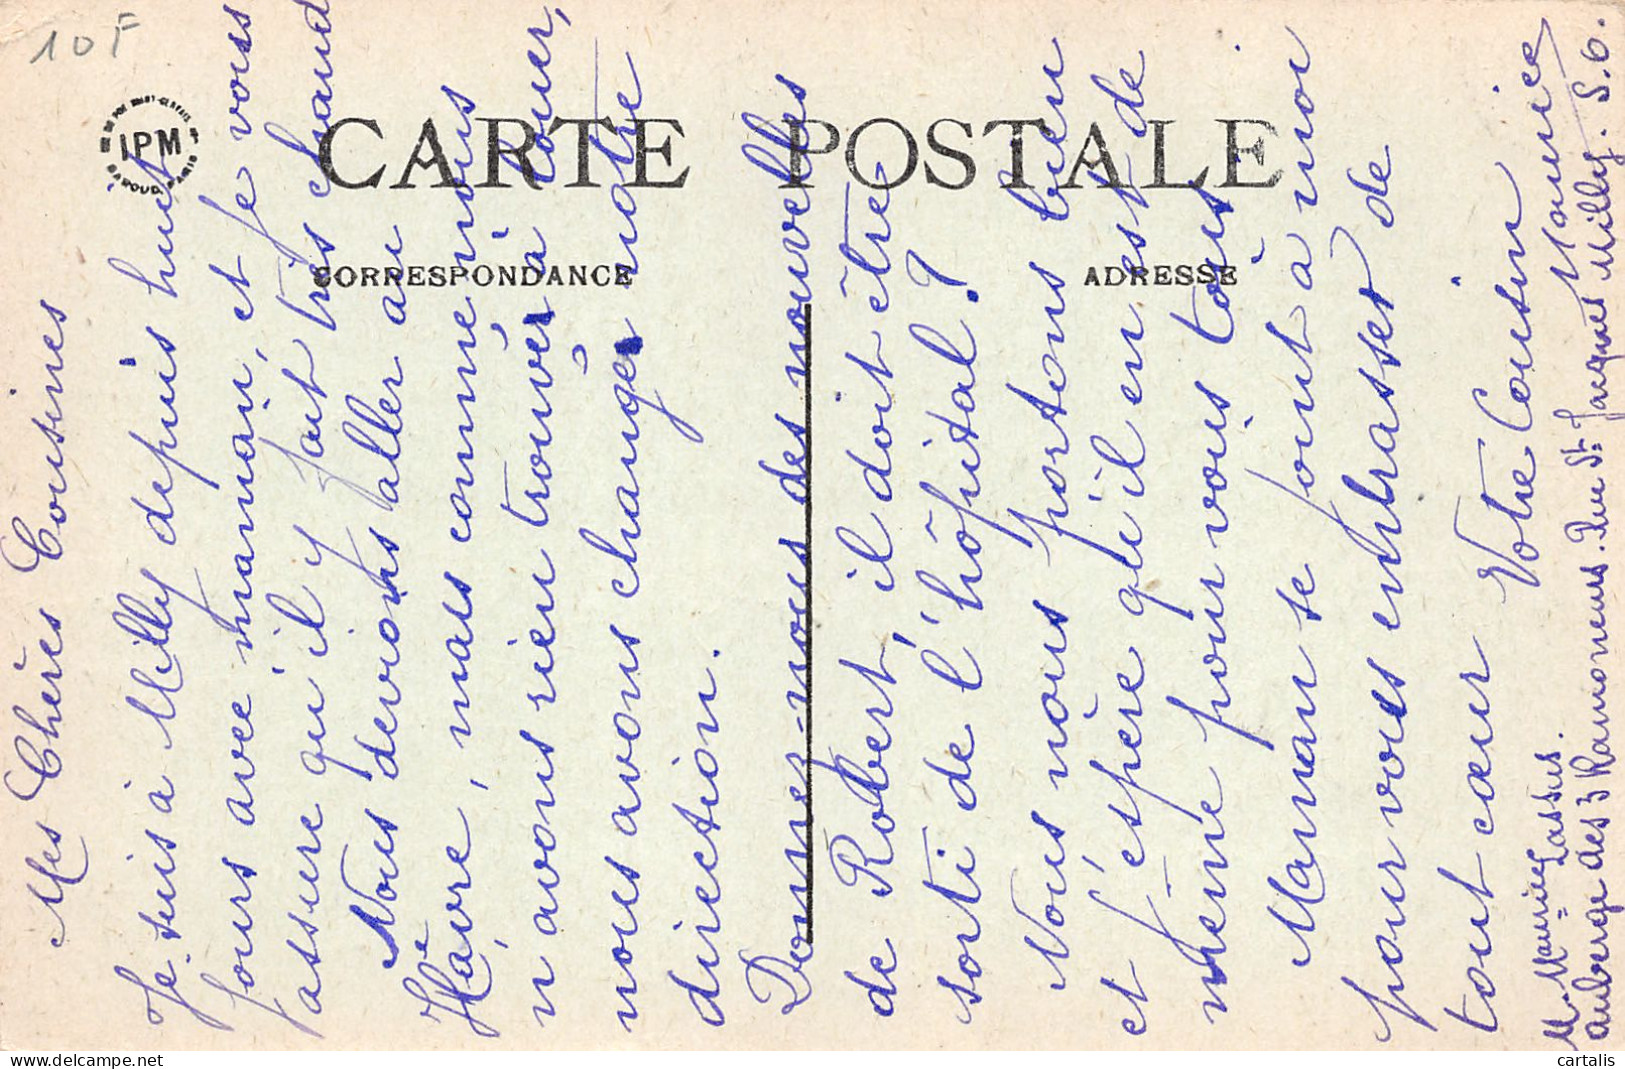 10F
IPM
CARTE POSTALE
CORRESPONDANCE
ADRESSE
Mes Chères Cousines
Je suis à Milly depuis huit
jours avec maman, et je vous
assure qu'il y fait très chaud
Nous devions aller au
Hâvre, mais comme nous
n'avons rien trouvér à louer,
nous avons changer nôtre
direction.
Donnes-nous des nouvelles
de Robert, il doit être
sorti de l'hôpital?
Nous nous portons bien
et j'espère qu'il en est de
même pour vous tous
Maman se joint à moi
pour vous embrasser de
tout cœur Votre Cousin
Maurice
M. Maurice Lassus.
auberge des 3 Ramoneurs. Rue St Jacques Milly. S.O.
cartalis